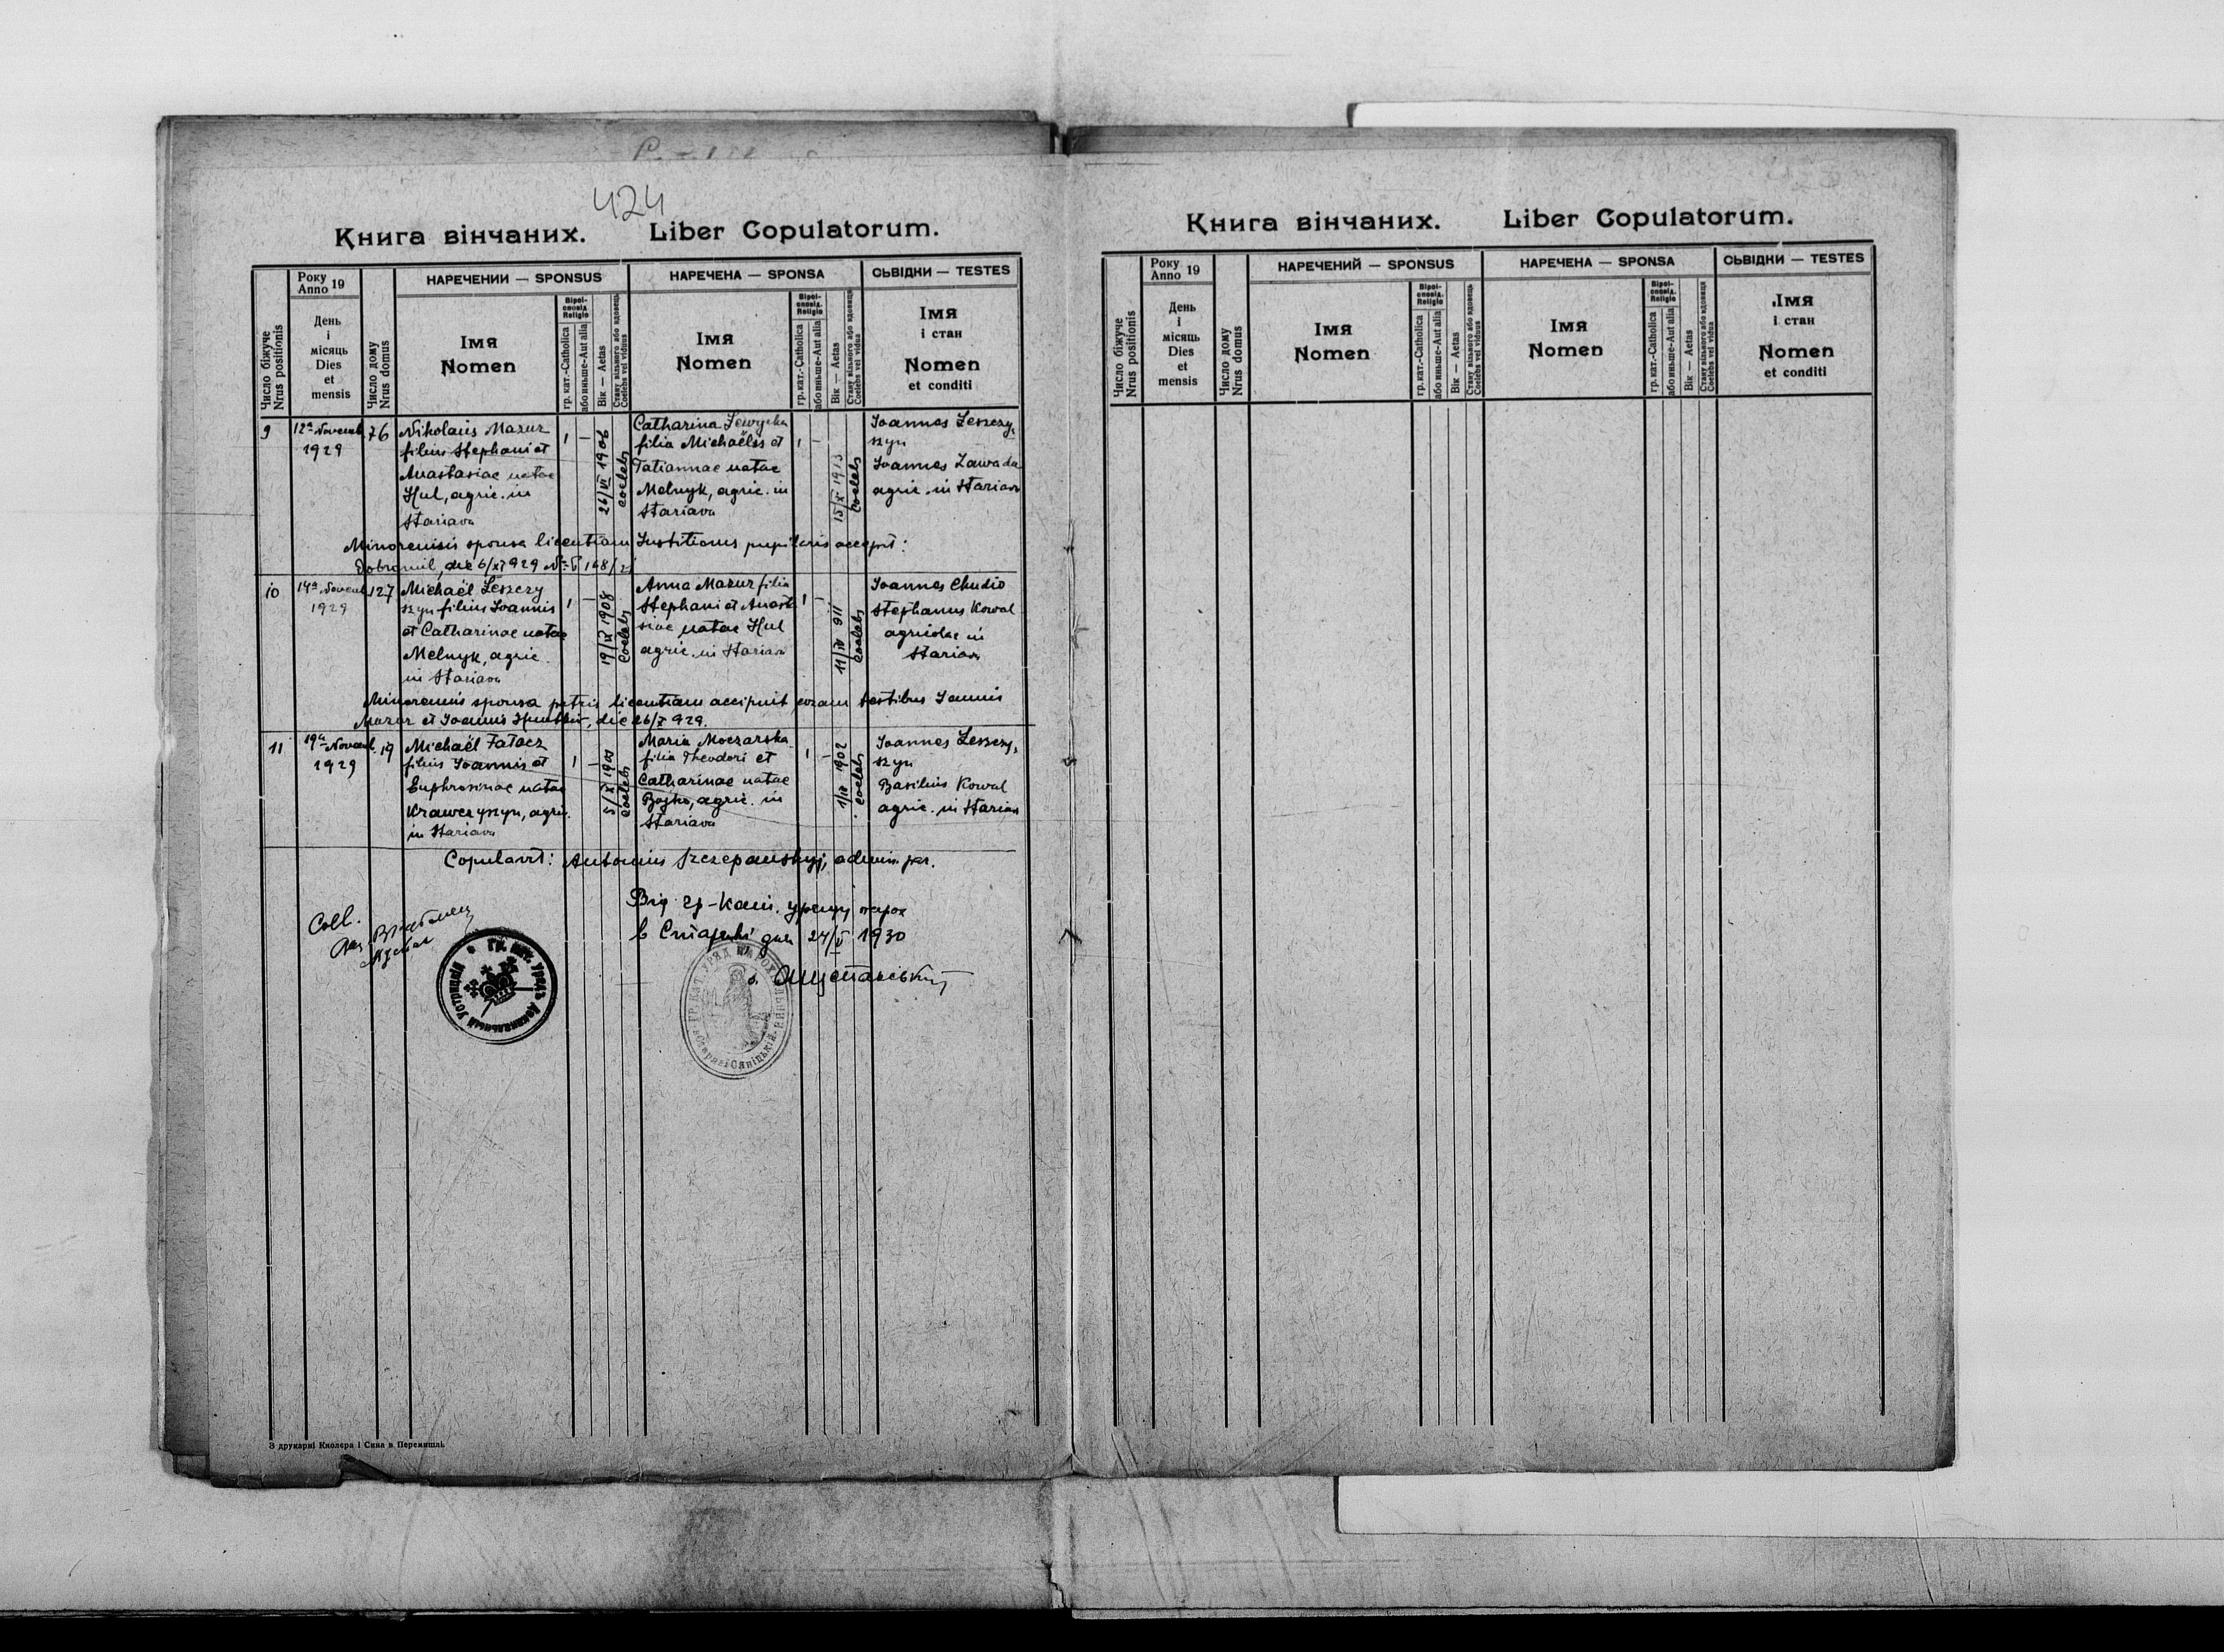 424
Книга вінчаних. Liber Copulatorum.
Число біжуче
Nrus positionis
Року
Anno 19
День
і
місяць
Dies
et
mensis
Число дому
Nrus domus
НАРЕЧЕНИЙ — SPONSUS
Імя
Nomen
Віроі-
сповід.
Religio
гр. кат.-Catholica
або иньше-Aut alia
Вік — Aetas
Стану вільного або вдовець
Coelebs vel viduus
НАРЕЧЕНА — SPONSA
Імя
Nomen
Віроі-
сповід.
Religio
гр. кат.-Catholica
або иньше-Aut alia
Вік — Aetas
Стану вільного або вдовиця
Coelebs vel vidua
СЬВІДКИ — TESTES
Імя
і стан
Nomen
et conditi
9
12a Novemb
1929
76
Nikolaus Mazur
filius Stephani et
Anastasiae natae
Hul, agric. in
Stariava
1 —
26/VI 1906
coelebs
Catharina Lewycka
filia Michaëlis et
Tatiannae natae
Melnyk, agric. in
Stariava
1 —
15/X 1913
coelebs
Joannes Leszczy-
szyn
Joannes Zawada
agric. in Stariava
Minorenis sponsa licentiam Institionis pupilaris accepit:
Dobromil, die 6/XI 929
10
14a Novemb
1929
127
Michaël Leszczy
szyn filius Joannis
et Catharinae natae
Melnyk, agric.
in Stariava
1 —
19/IX 1908
Coelebs
Anna Mazur filia
Stephani et Anasta
siae natae Hul
agric. in Stariava
1 —
11/IV 911
Coelebs
Joannes Chudio
Stephanus Kowal
agricolae in
Stariava
Minorennis sponsa patris licentiam accipuit coram testibus Joannis
Mazur et Joannis die 26/X 929.
11
19a Novemb.
1929
19
Michaël Tatacz
filius Joannis et
Euphrosinae natae
Krawczyszyn, agric.
in Stariava
1 —
Coelebs
Maria Moczarska
filia Theodori et
Catharinae natae
Bojko, agric. in
Stariava
1 —
1/IV 1902
coelebs
Joannes Leszczy-
szyn
Basilius Kowal
agric. in Stariava
Copulavit: Antonius Szczepanskyj, admin. par.
Від гр-кат. уряду парох
в Стариві дня 24/V 1930
о. А Щепанський
Coll.
ГР. КАТ. УРЯД ПАРОХІЯЛЬНИЙ
З друкарні Кнолєра і Сина в Перемишлі
Книга вінчаних. Liber Copulatorum.
Число біжуче
Nrus positionis
Року
Anno 19
День
і
місяць
Dies
et
mensis
Число дому
Nrus domus
НАРЕЧЕНИЙ — SPONSUS
Імя
Nomen
Віроі-
сповід.
Religio
гр. кат.-Catholica
або иньше-Aut alia
Вік — Aetas
Стану вільного або вдовець
Coelebs vel viduus
НАРЕЧЕНА — SPONSA
Імя
Nomen
Віроі-
сповід.
Religio
гр. кат.-Catholica
або иньше-Aut alia
Вік — Aetas
Стану вільного або вдовиця
Coelebs vel vidua
СЬВІДКИ — TESTES
Імя
і стан
Nomen
et conditi